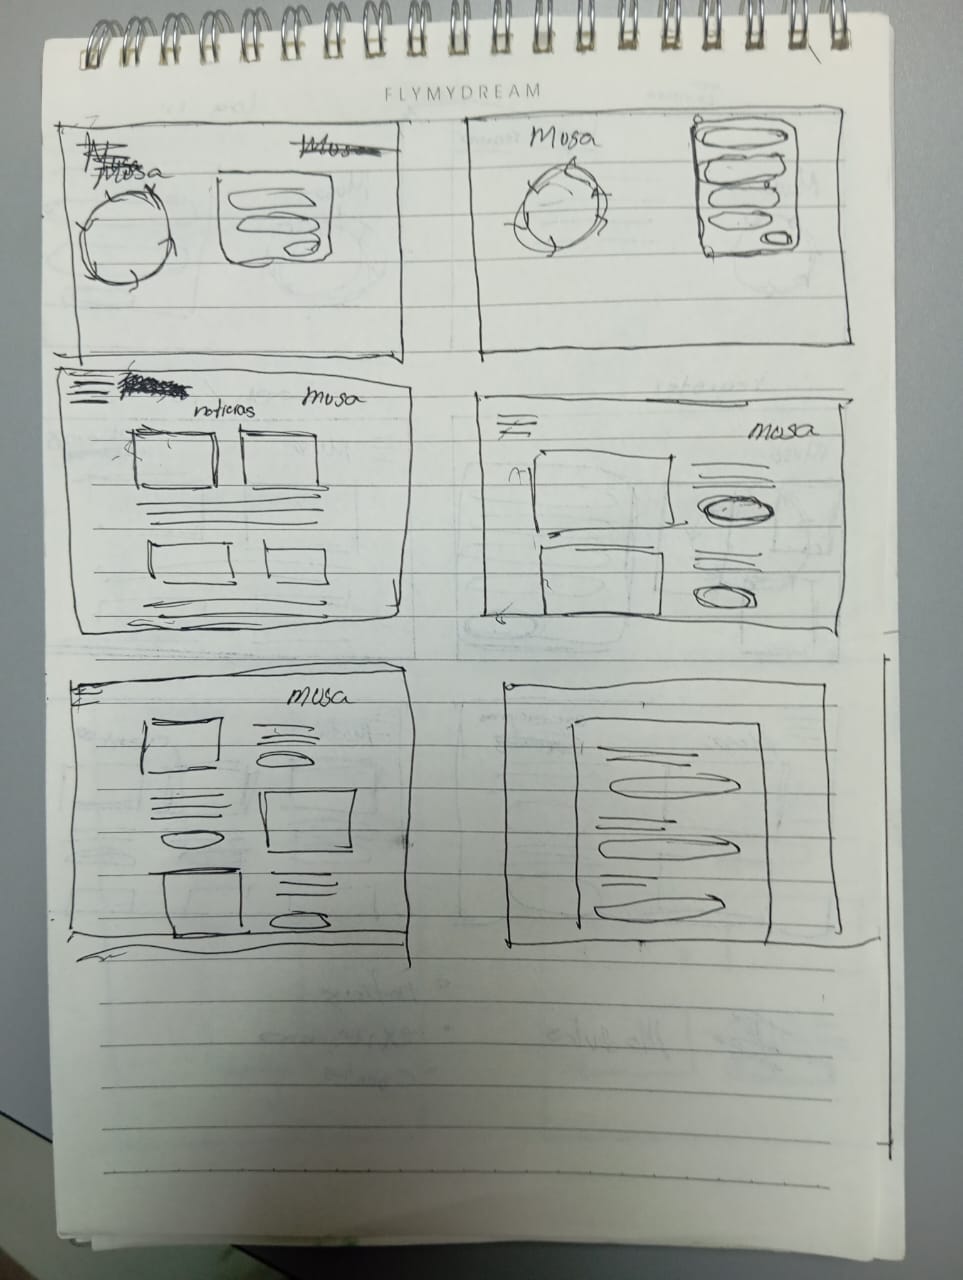 FLYMYDREAM
Musa
Musa
Musa
noticias
musa
masa
musa